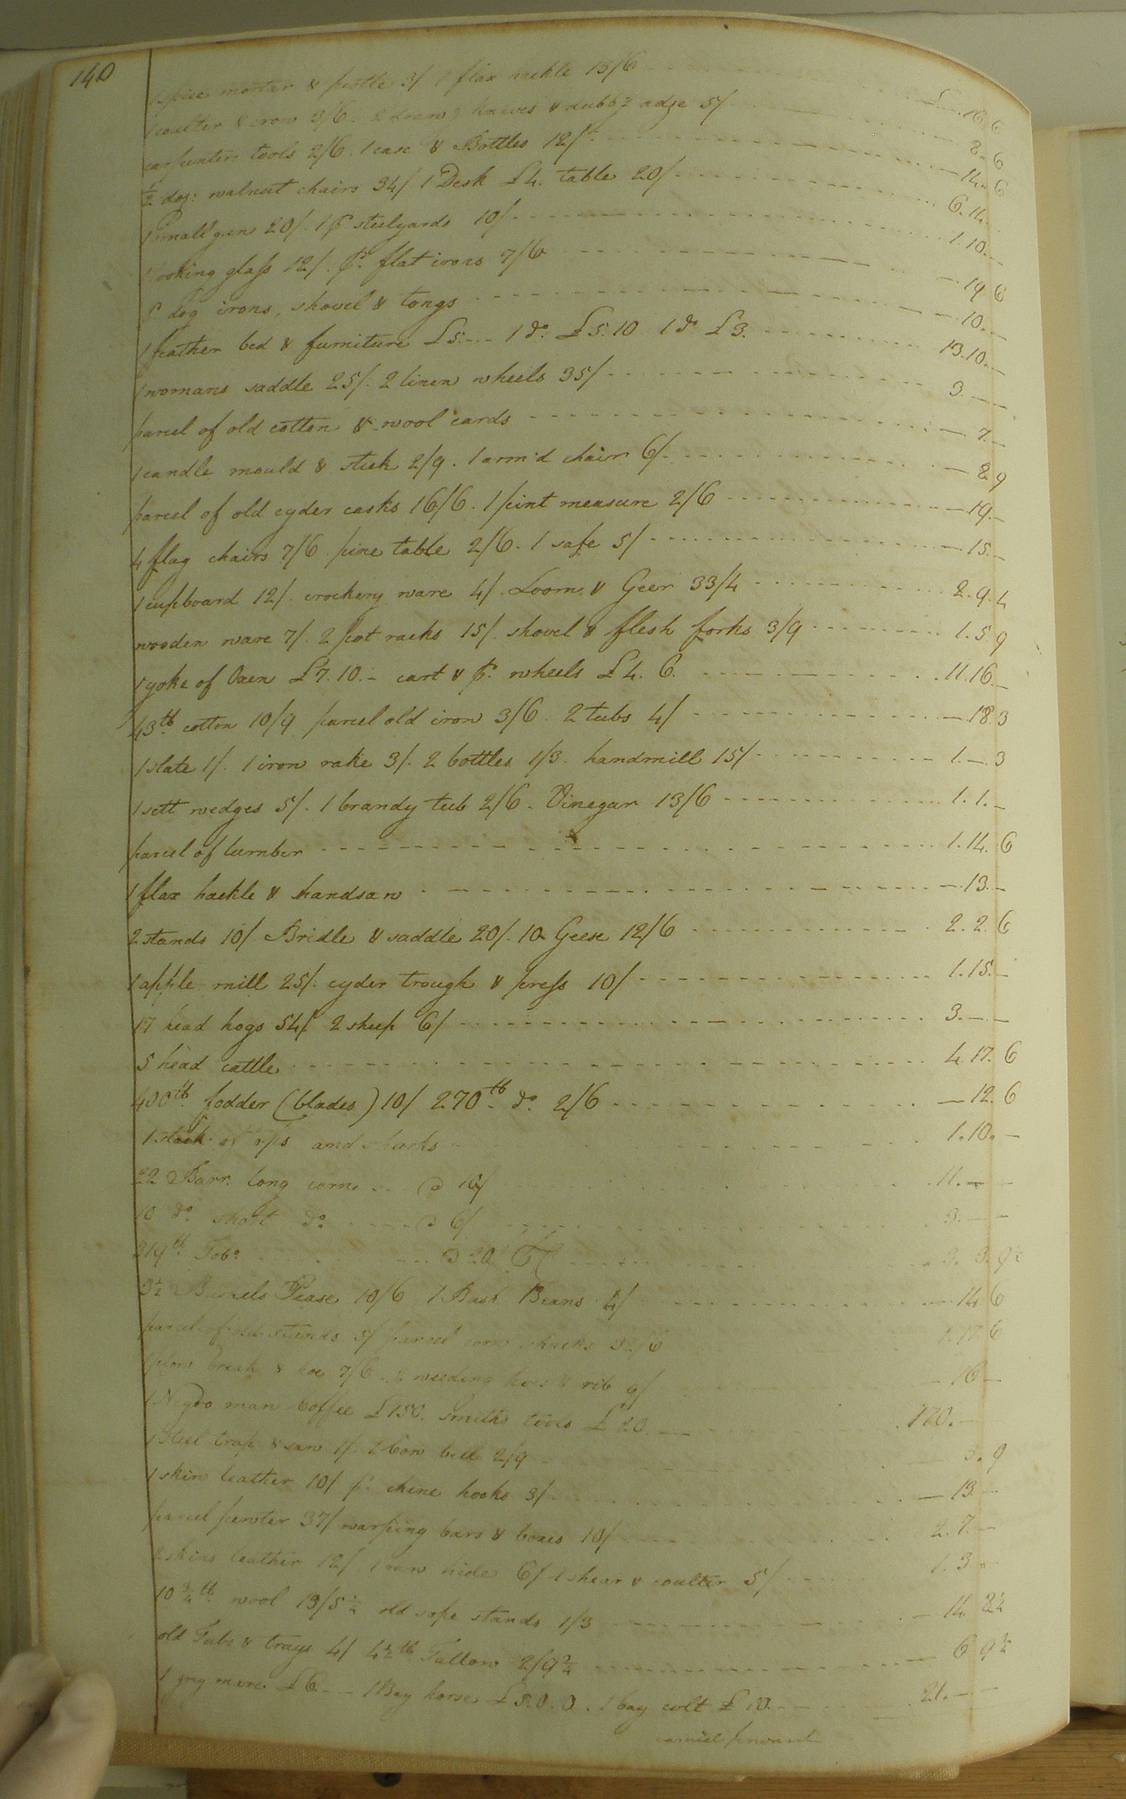 140
1 spice mortar & pestle 3/ 1 flax hackle 13/6 £ - 16. 6
1 coulter & iron 3/6. 2 drawg knives & adze 5/ 8. 6
carpenters tools 2/6. 1 case & Bottles 12/ 14. 6
½ doz: walnut chairs 34/ 1 Desk £4. table 20/ 6. 14. -
1 small gun 20/. 1 pr steelyards 10/ 1. 10. -
1 looking glass 12/. pr. flat irons 7/6 - 19. 6
pr dog irons, shovel & tongs - 10. -
1 feather bed & furniture £5. - - 1 do. £5.10 1 do £3. 13. 10. -
1 womans saddle 25/. 2 linen wheels 35/ 3. - -
parcel of old cotton & wool cards - 7. -
1 candle mould & stick 2/9. 1 arm'd chair 6/. - 8. 9
parcel of old cyder casks 16/6. 1 pint measure 2/6 - 19. -
4 flag chairs 7/6 pine table 2/6. 1 safe 5/ - 15. -
1 cupboard 12/. crockery ware 4/. Loom & Geer 33/4 2. 9. 4
wooden ware 7/. 2 pot racks 15/. shovel & flesh forks 3/9 1. 5. 9
1 yoke of Oxen £7. 10. - cart & pr. wheels £4. 6. 11. 16. -
43lb cotton 10/9 parcel old iron 3/6. 2 tubs 4/ - 18. 3
1 slate 1/. 1 iron rake 3/. 2 bottles 1/3. handmill 15/ 1. - . 3
1 sett wedges 5/. 1 brandy tub 2/6. Vinegar 13/6 1. 1. -
parcel of lumber 1. 14. 6
1 flax hackle & handsaw - 13. -
2 stands 10/ Bridle & saddle 20/. 10 Geese 12/6 2. 2. 6
1 apple mill 25/. cyder trough & press 10/ 1. 15. -
17 head hogs 54/ 2 sheep 6/ 3. - -
5 head cattle 4. 17. 6
400lb. fodder (blades) 10/ 270lb. do. 2/6 - 12. 6
1 stack of tops and shucks 1. 10. -
22 Barr. long corn @ 10/ 11. - -
10 do short do. @ 6/ 3. - -
319lb. Tobo. @ 20/ 3. 3. 9½
3½ Barrels Pease 10/6 1 Bush Beans 4/ - 14. 6
parcel old stands 5/ parcel corn shucks 32/6 1. 17. 6
plow break & hoe 7/6. 2 weeding hoes & rib 9/ - 16 -
1 Negro man Coffee £150. Smiths tools £20. - - 170. - -
1 steel trap & saw 1/. 1 Cow bell 2/9 3. 9
1 skin leather 10/ pr. chine hooks 3/ - 13 -
parcel pewter 37/ warping bars & boxes 10/ 2. 7. -
2 skins leather 12/ 1 raw hide 6/ 1 shear & coulter 5/ 1. 3 -
10¾lb. wool 13/5¼ old safe stands 1/3 - 14. 8¼
old Tubs & trays 4/ 4½lb Tallow 2/9¾ - 6 9¾
1 grey mare £6. - - 1 Bay horse £5. 0. 0. 1 bay colt £10. - - 21. - -
carried forward